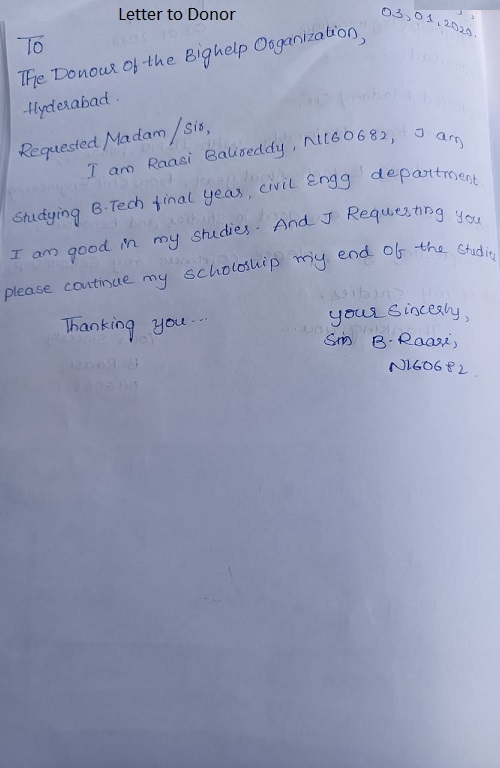 Letter to Donor
03,01,2020.
To
The Donour Of the Bighelp Organization,
Hyderabad.
Requested Madam/Sir,
I am Raasi Balireddy, N160682, I am
studying B.Tech final year, civil Engg department.
I am good in my studies. And I Requesting you
please continue my scholoship my end of the studies
Thanking you...
your Sincerly,
B. Raasi,
N160682.